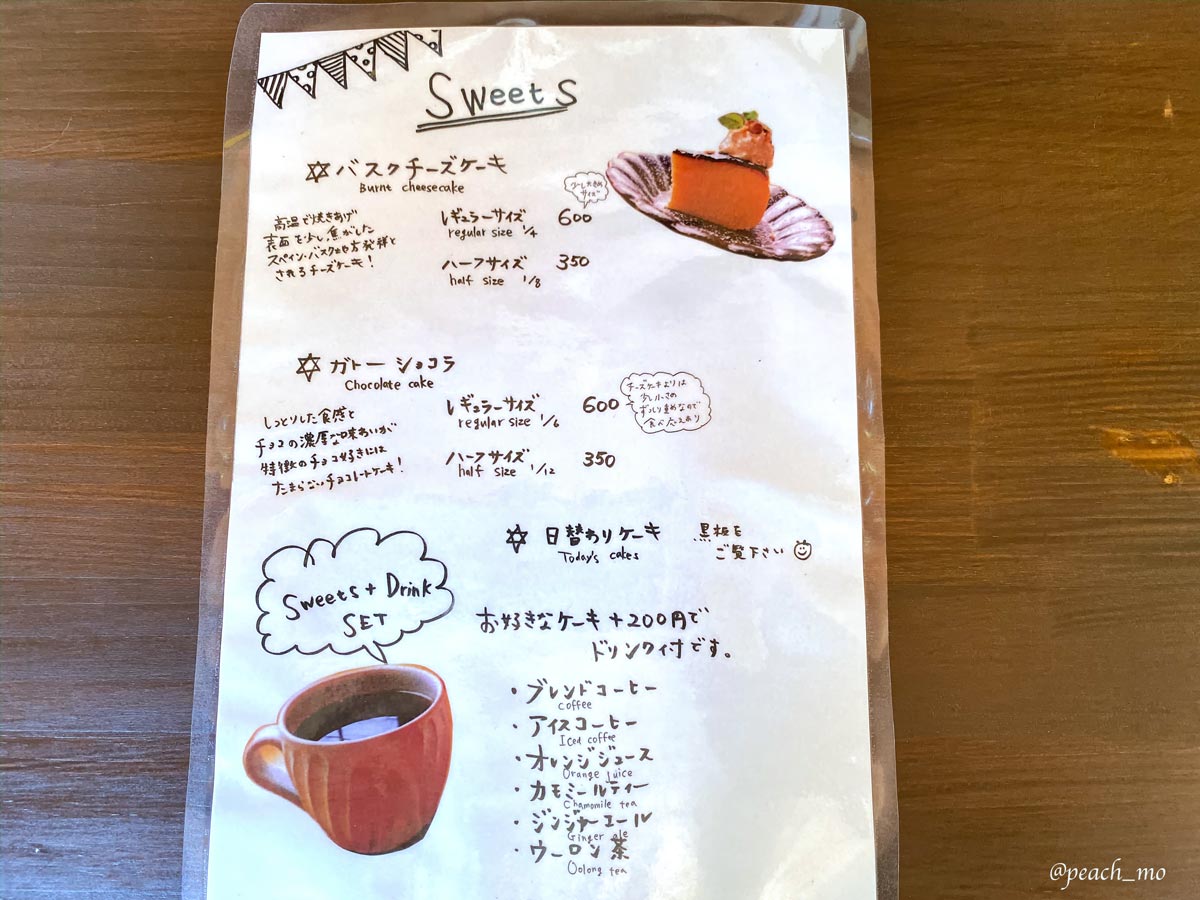 Sweets
バスクチーズケーキ
Burnt cheesecake
高温で焼きあげ
表面を少し焦がした
スペイン・バスク地方発祥と
されるチーズケーキ!
少し大きめ
サイズ
レギュラーサイズ 600
regular size 1/4
ハーフサイズ 350
half size 1/8
ガトーショコラ
Chocolate cake
しっとりした食感と
チョコの濃厚な味わいが
特徴のチョコ好きには
たまらないチョコレートケーキ!
レギュラーサイズ 600
regular size 1/6
チーズケーキよりは
少し小さめ
ずっしり重めなので
食べ応えあり
ハーフサイズ 350
half size 1/12
日替わりケーキ
Today's cakes
黒板を
ご覧下さい
Sweets + Drink
SET
お好きなケーキ+200円で
ドリンク付です。
・ブレンドコーヒー
coffee
・アイスコーヒー
Iced coffee
・オレンジジュース
Orange juice
・カモミールティー
Chamomile tea
・ジンジャーエール
Ginger ale
・ウーロン茶
Oolong tea
@peach_mo